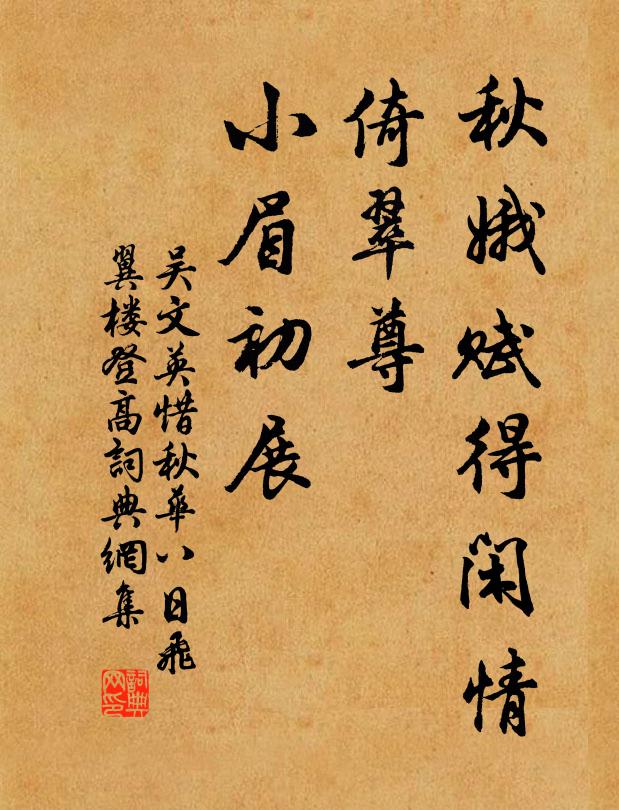 秋娥赋得闲情
倚翠尊
小眉初展
吴文英惜秋華八日飛
翼楼登高詞典網集
詞典
网印